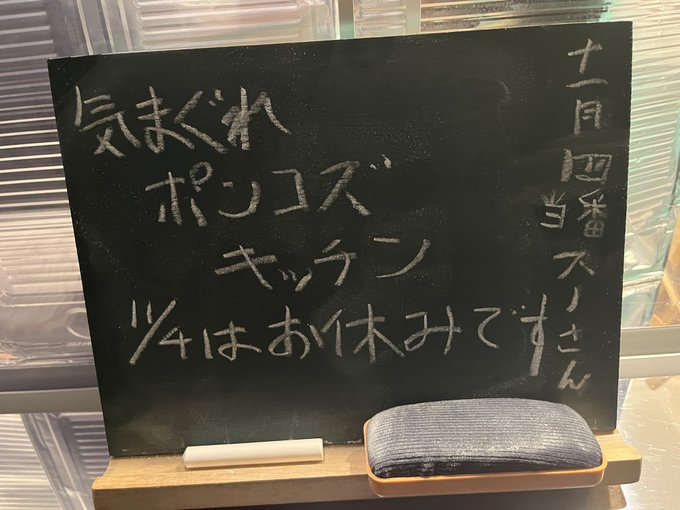 気まぐれ
ポンコズ
キッチン
11/4はお休みです
十一月四
当番スノさん